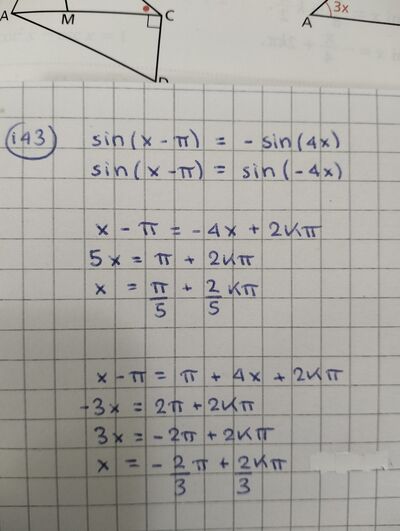 A M C
A 3x
143 sin(x - π) = - sin(4x)
sin(x - π) = sin(-4x)
x - π = -4x + 2kπ
5x = π + 2kπ
x = π/5 + 2/5 kπ
x - π = π + 4x + 2kπ
-3x = 2π + 2kπ
3x = -2π + 2kπ
x = - 2/3 π + 2/3 kπ